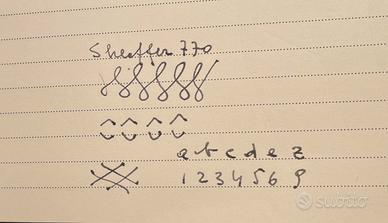 Sheaffer 770
a b c d e z
1 2 3 4 5 6 9
subito